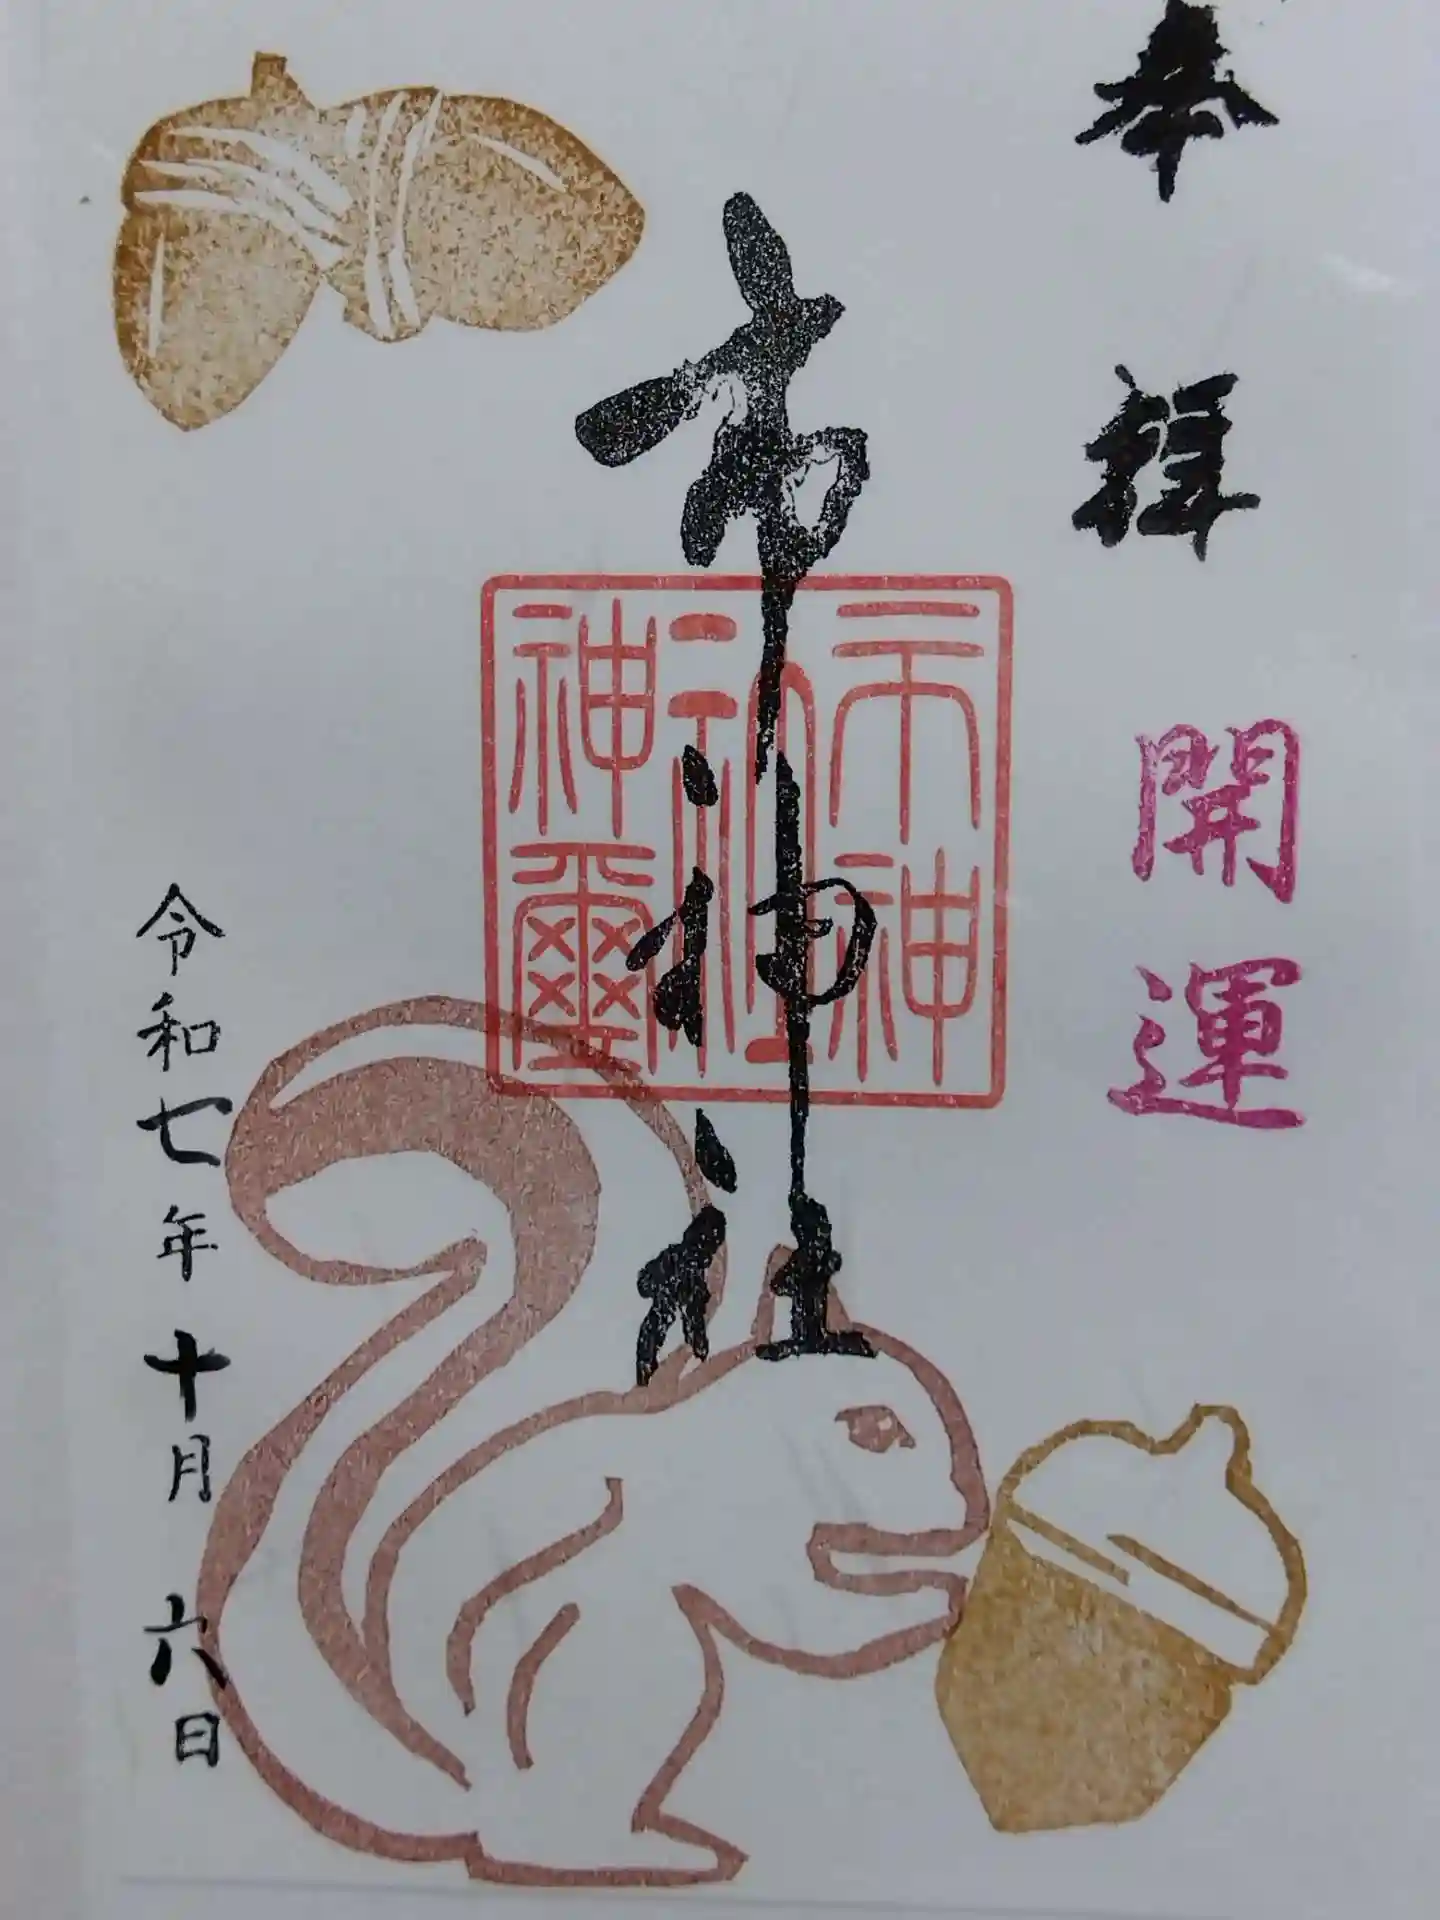 奉拝
開運
市神社
市神
社
神璽
令和七年十月六日